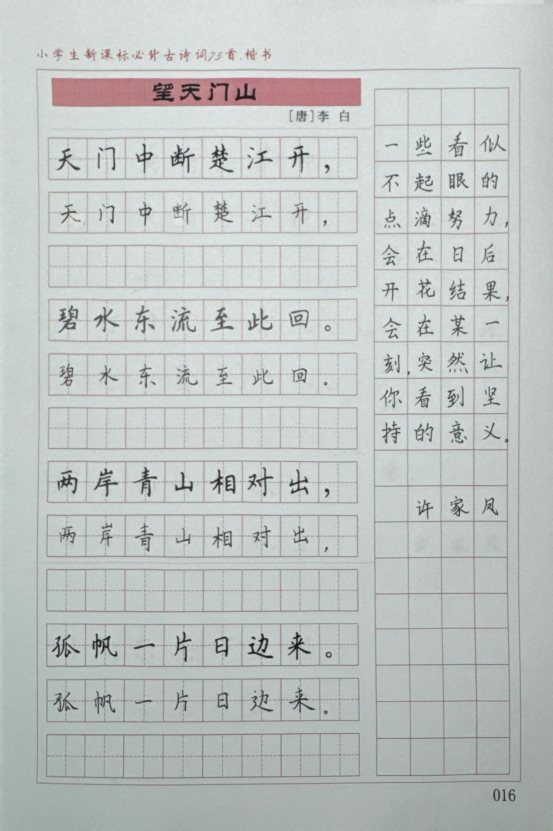 小学生新课标必背古诗词75首.楷书
望天门山
[唐]李 白
天门中断楚江开，
天门中断楚江开，
碧水东流至此回。
碧水东流至此回。
两岸青山相对出，
两岸青山相对出，
孤帆一片日边来。
孤帆一片日边来。
一些看似
不起眼的
点滴努力，
会在日后
开花结果，
会在某一
刻，突然让
你看到坚
持的意义。
许家凤
016